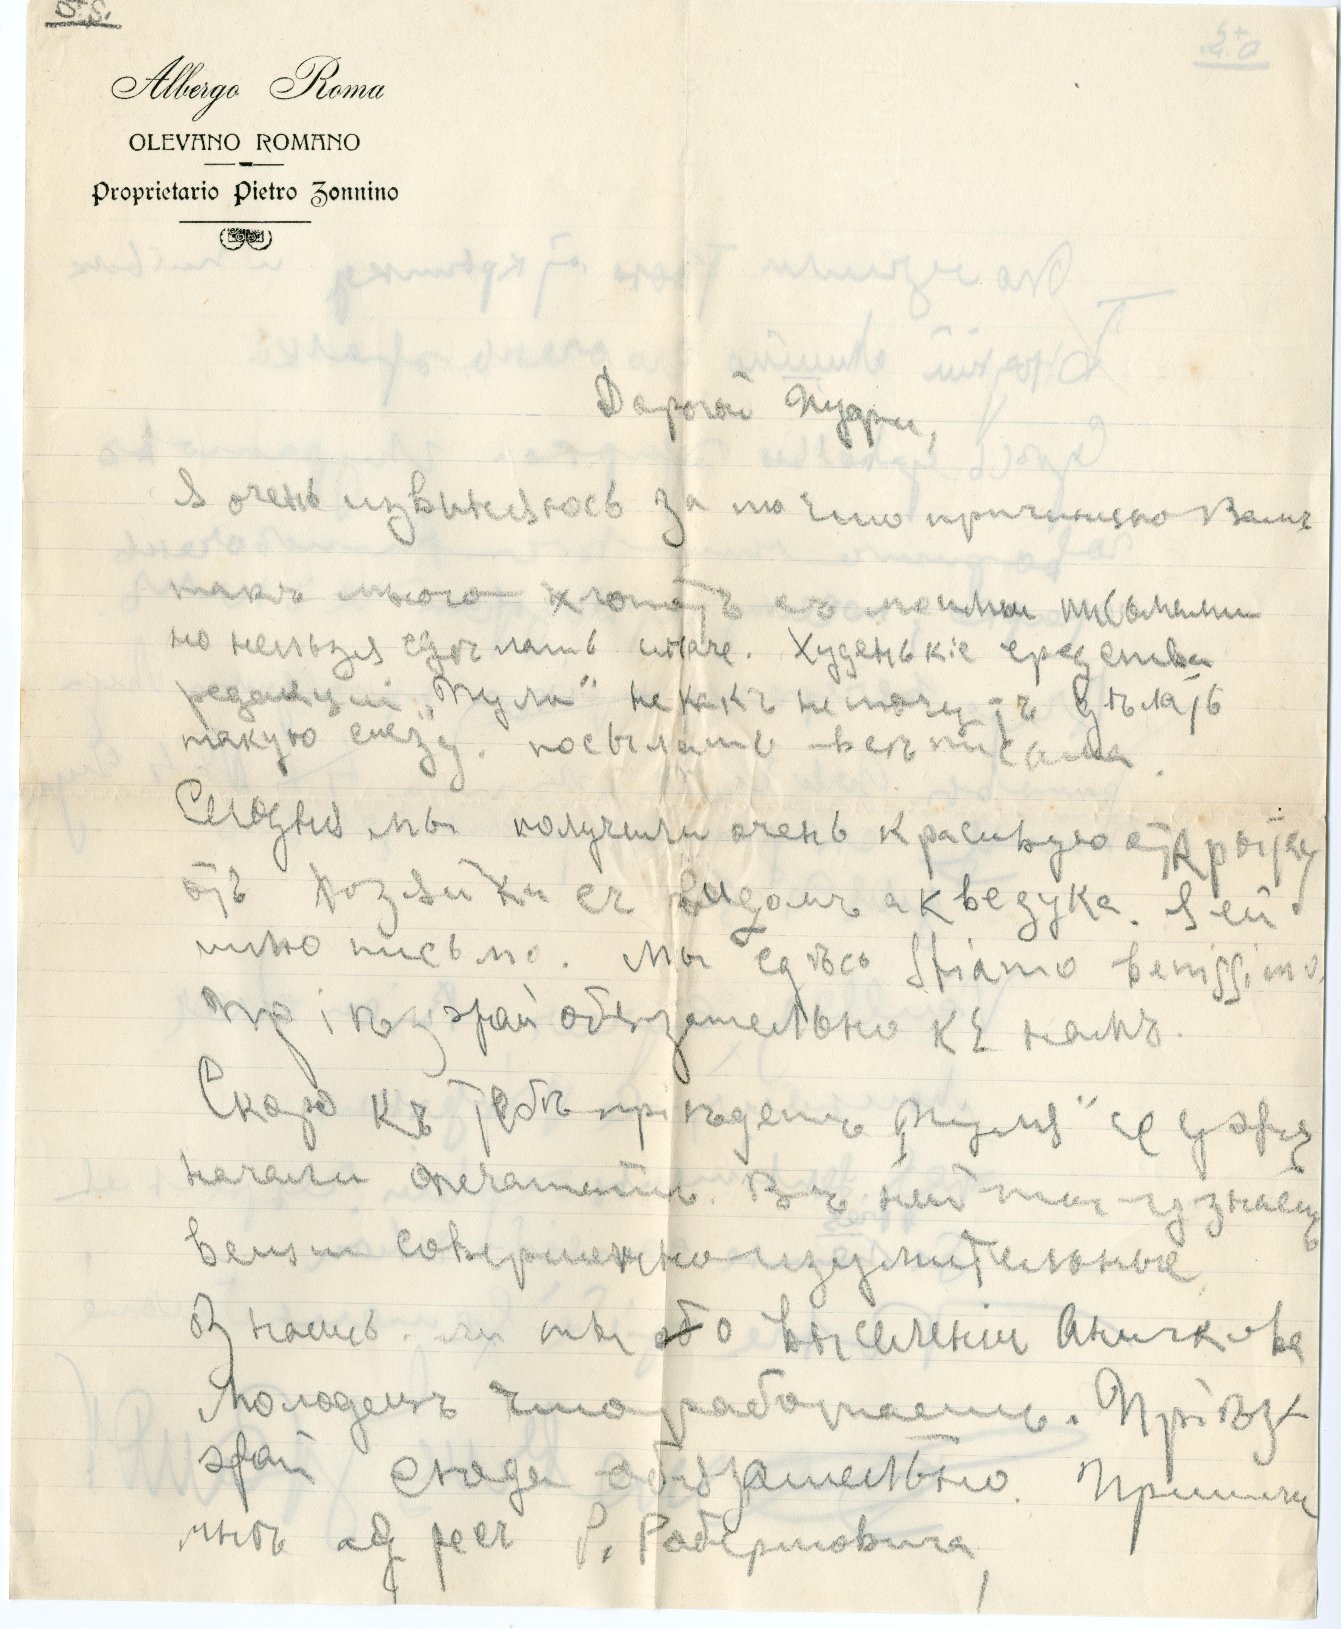 Albergo Roma
OLEVANO ROMANO
Proprietario Pietro Zonnino
Дорогой Пудри,
Я очень извиняюсь за то что причиняю Вамъ
такъ много хлопотъ съ моими письмами
но нельзя сдѣлать иначе. Худенькіе средства
редакціи „Тули" не какъ немогутъ сдѣлать
такую посылать всѣ письма.
Сегодня мы получили очень красивую открытку
отъ съ видомъ акведука. Я ей
пишю письмо. Мы сдѣсь Stiamo benissimo
Пріѣзжай обязательно къ намъ.
Скоро къ тебѣ пріѣдетъ „Туля" Её уже
начали печатать. Въ ней ты узнаешь
вещи совершенно изумительные
Знаешь ли ты обо выселеніи Аничкова
Молодецъ что работаетъ. Пріѣз-
жай сюда обязательно. Пришли
мнѣ адресъ Р. Робертовича,